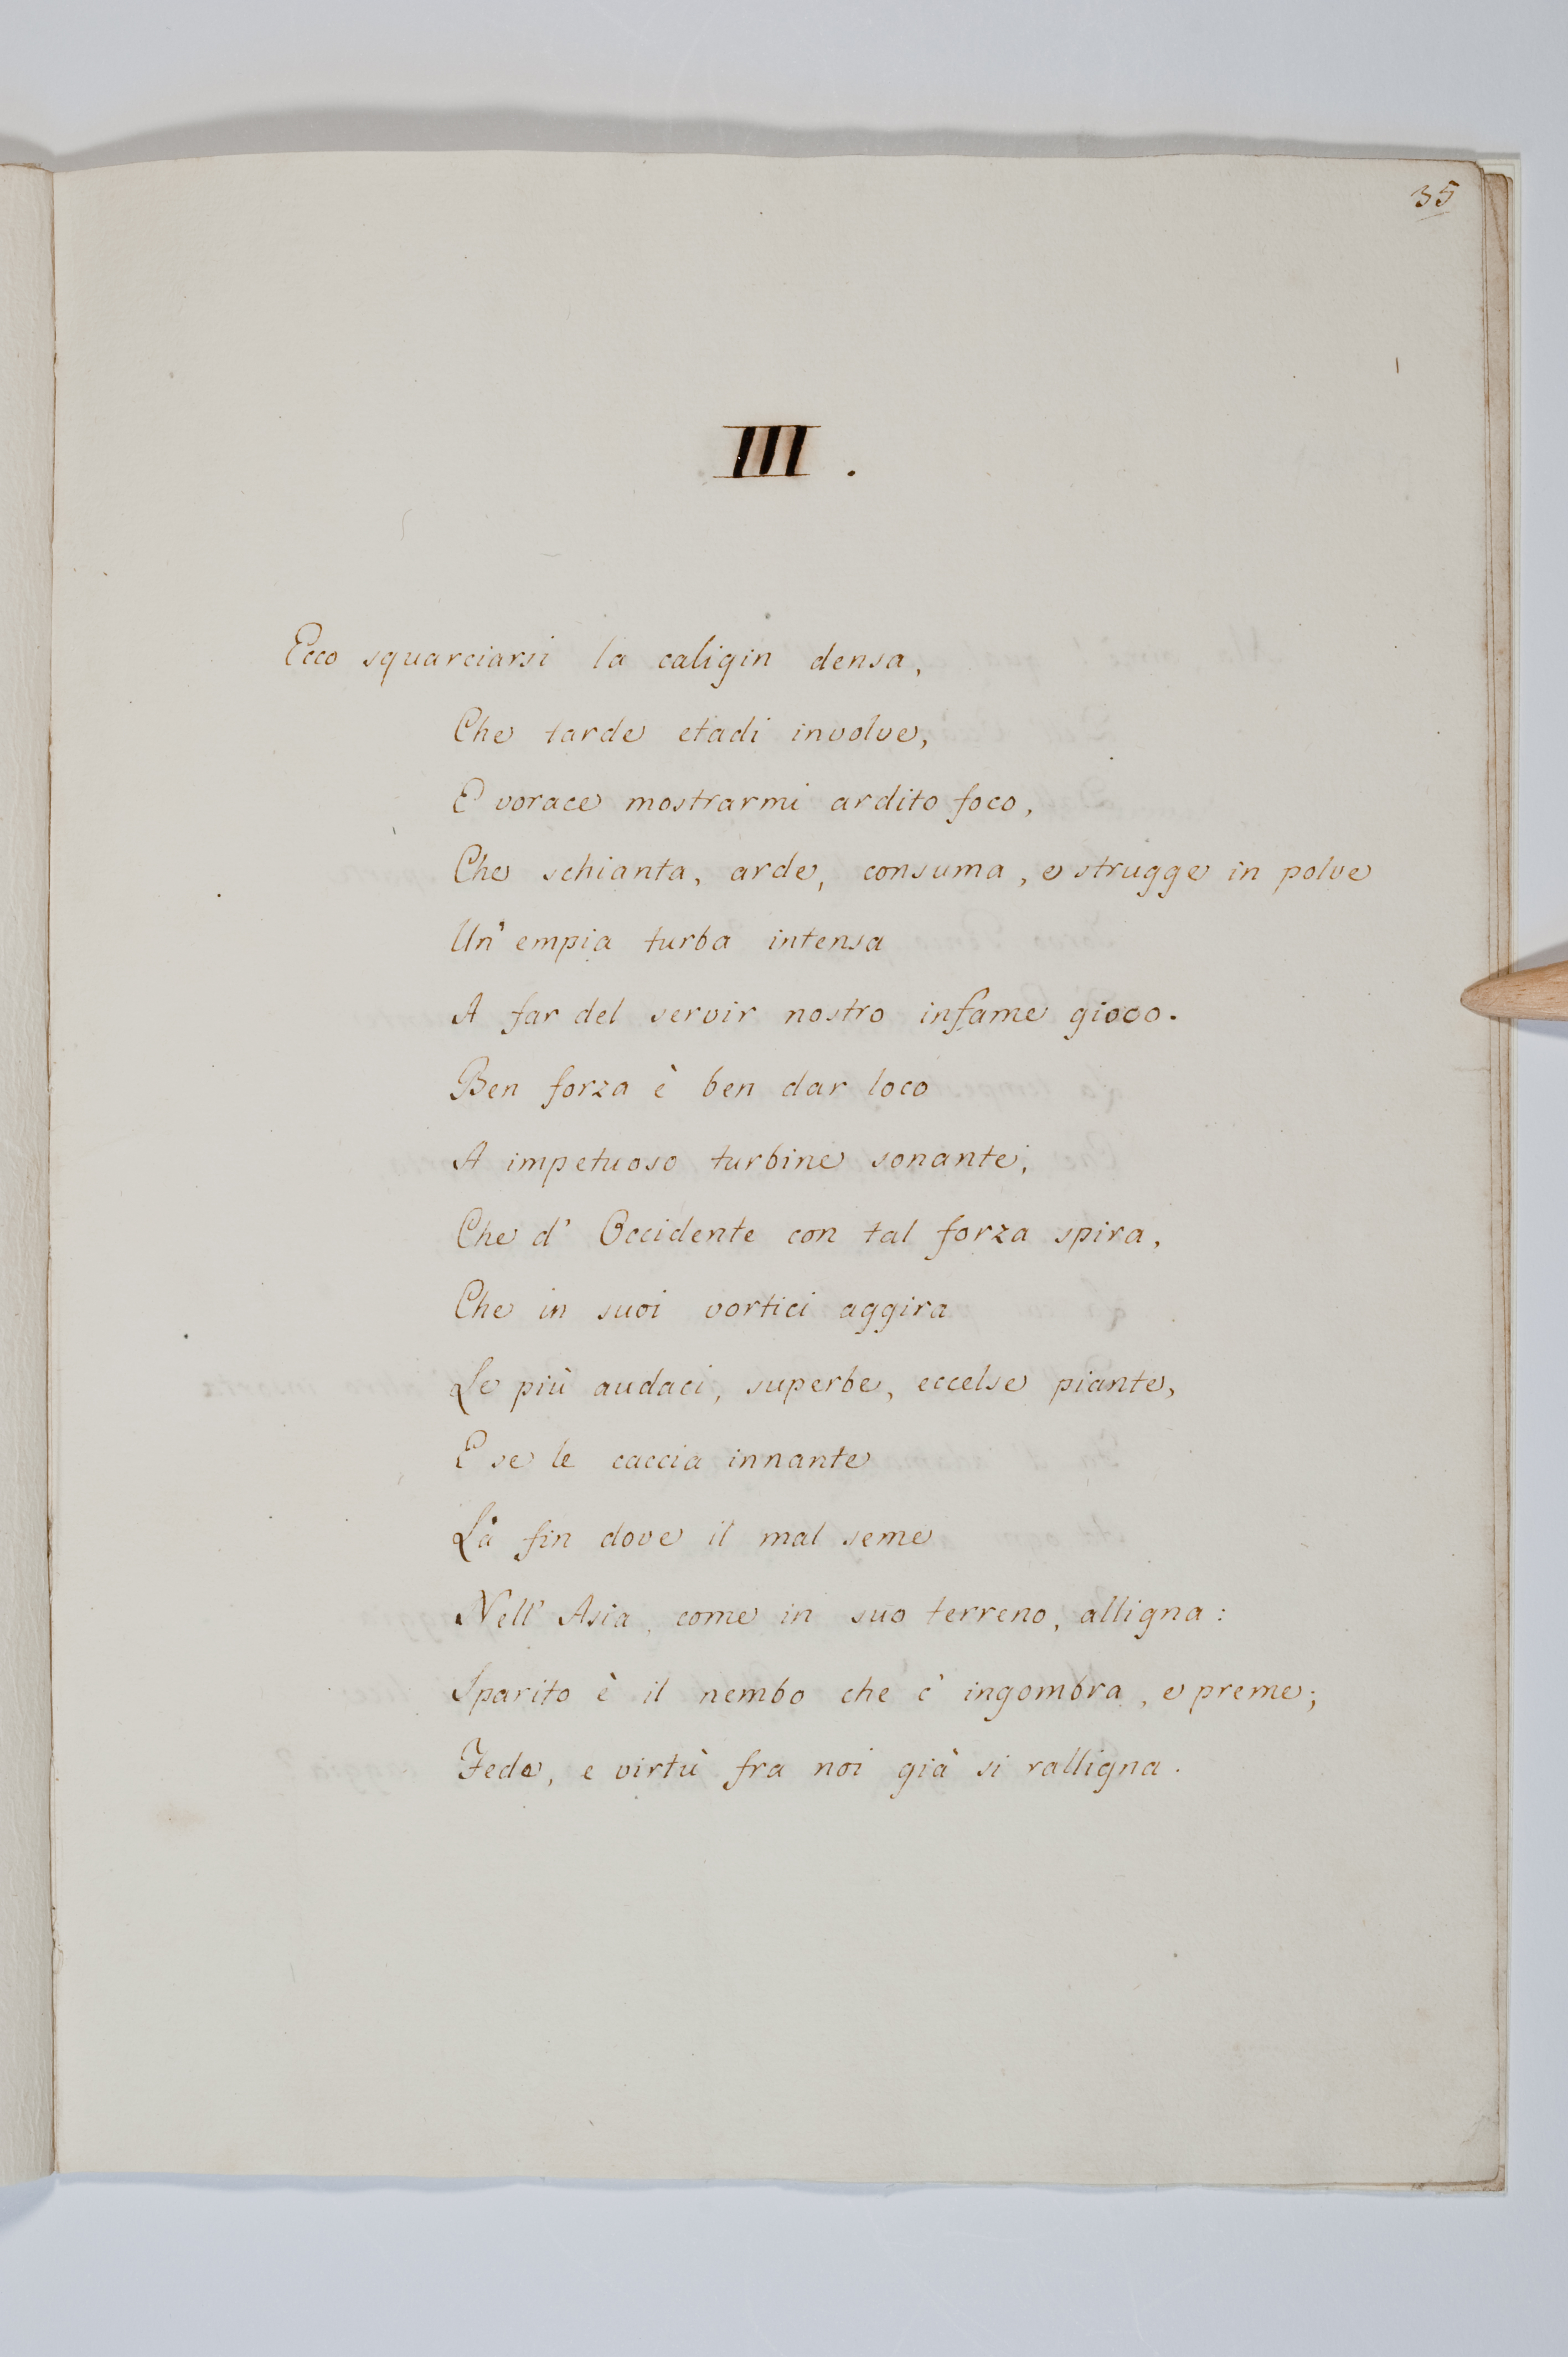 35
III.
Ecco squarciarsi la caligin densa,
Che tarde etadi involve,
E vorace mostrarmi ardito foco,
Che schianta, arde, consuma, e strugge in polve
Un' empia turba intensa
A far del servir nostro infame gioco.
Ben forza è ben dar loco
A impetuoso turbine sonante,
Che d' Occidente con tal forza spira,
Che in suoi vortici aggira
Le più audaci, superbe, eccelse piante,
E se le caccia innante
Là fin dove il mal seme
Nell' Asia, come in suo terreno, alligna:
Sparito è il nembo che c' ingombra, e preme;
Fede, e virtù fra noi già si ralligna.